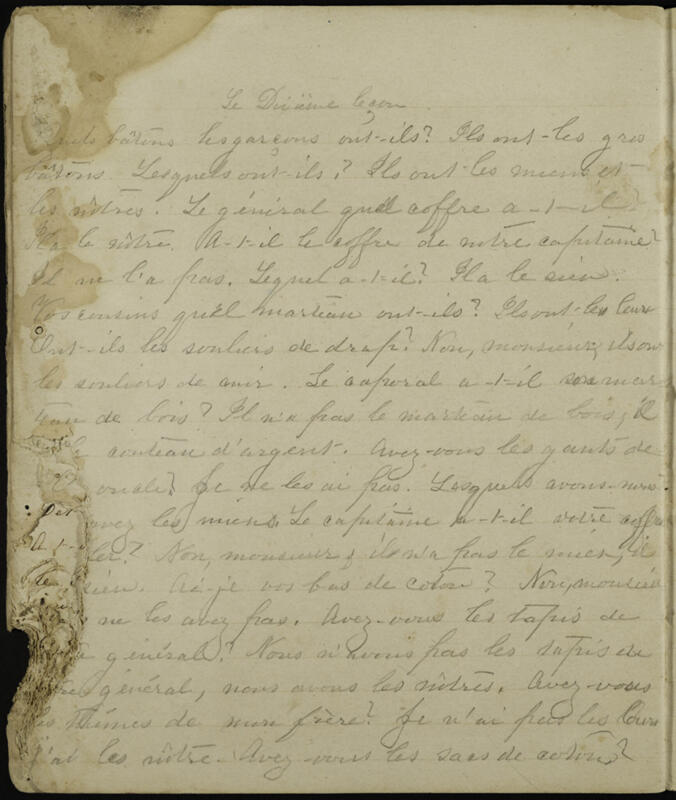 Le Dixième leçon
Quels bâtons les garçons ont-ils? Ils ont-les gros
bâtons. Lesquels ont-ils? Ils ont les miens et
les nôtres. Le général quel coffre a-t-il?
Il a le nôtre. A-t-il le coffre de nôtre capitaine?
Il ne l'a pas. Lequel a-t-il? Il a le sien.
Vos cousins quel marteau ont-ils? Ils ont les leurs
Ont-ils les souliers de drap? Non, monsieur, ils ont
les souliers de cuir. Le caporal a-t-il mar
teau de bois? Il n'a pas le marteau de bois, il
couteau d'argent. Avez-vous les gants de
Je ne les ai pas. Lesquels avons-nous.
avez les miens. Le capitaine a-t-il votre coffre
Non, monsieur, il n'a pas le mien, il
sien. Ai-je vos bas de coton? Non, monsieur
ne les avez pas. Avez-vous les tapis de
général? Nous n'avons pas les tapis de
général, nous avons les nôtres. Avez-vous
les thèmes de mon frère? Je n'ai pas les leurs
J'ai les nôtre. Avez-vous les sacs de coton?